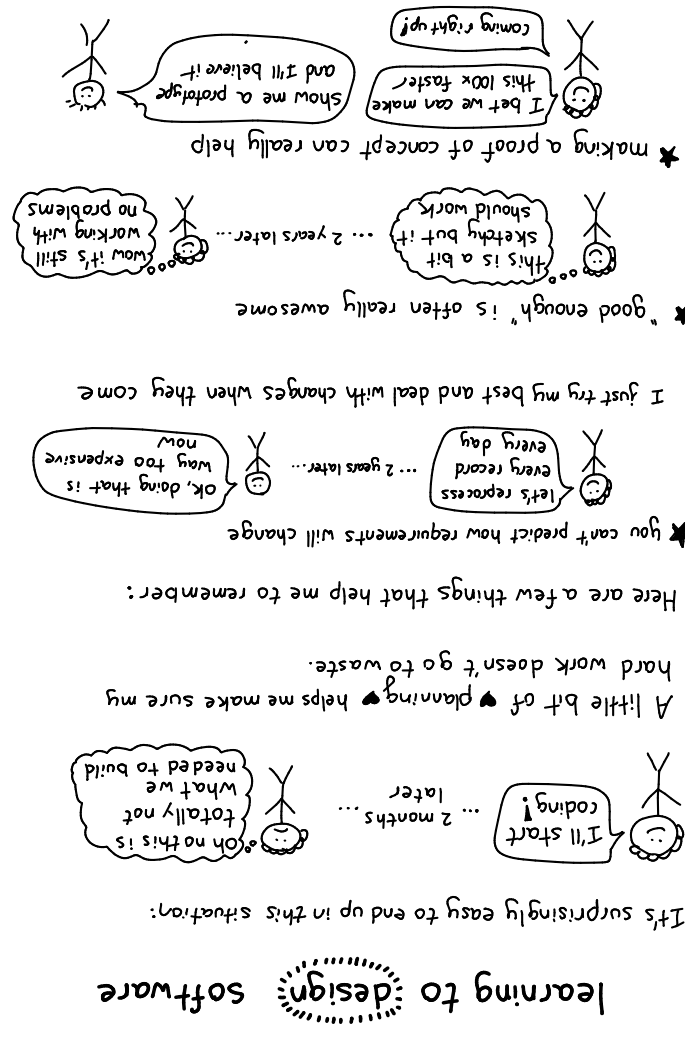 learning to design software
It's surprisingly easy to end up in this situation:
I'll start
coding!
... 2 months
later ...
oh no this is
totally not
what we
needed to build
A little bit of ♥ planning ♥ helps me make sure my
hard work doesn't go to waste.
Here are a few things that help me to remember:
★ you can't predict how requirements will change
let's reprocess
every record
every day
... 2 years later...
ok, doing that is
way too expensive
now
I just try my best and deal with changes when they come
★ "good enough" is often really awesome
this is a bit
sketchy but it
should work
... 2 years later...
wow it's still
working with
no problems
★ making a proof of concept can really help
I bet we can make
this 100x faster
show me a prototype
and I'll believe it
coming right up!